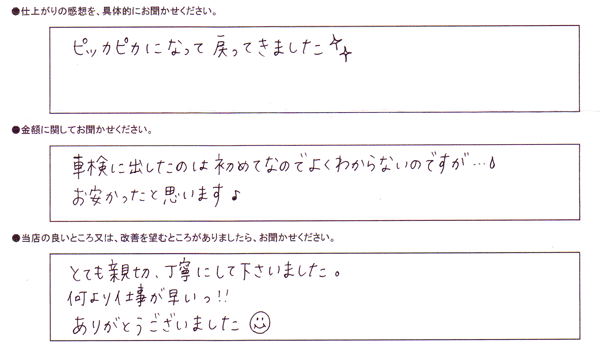 ●仕上がりの感想を、具体的にお聞かせください。
ピッカピカになって戻ってきました
●金額に関してお聞かせください。
車検に出したのは初めてなのでよくわからないのですが…
お安かったと思います♪
●当店の良いところ又は、改善を望むところがありましたら、お聞かせください。
とても親切、丁寧にして下さいました。
何より仕事が早いっ!!
ありがとうございました